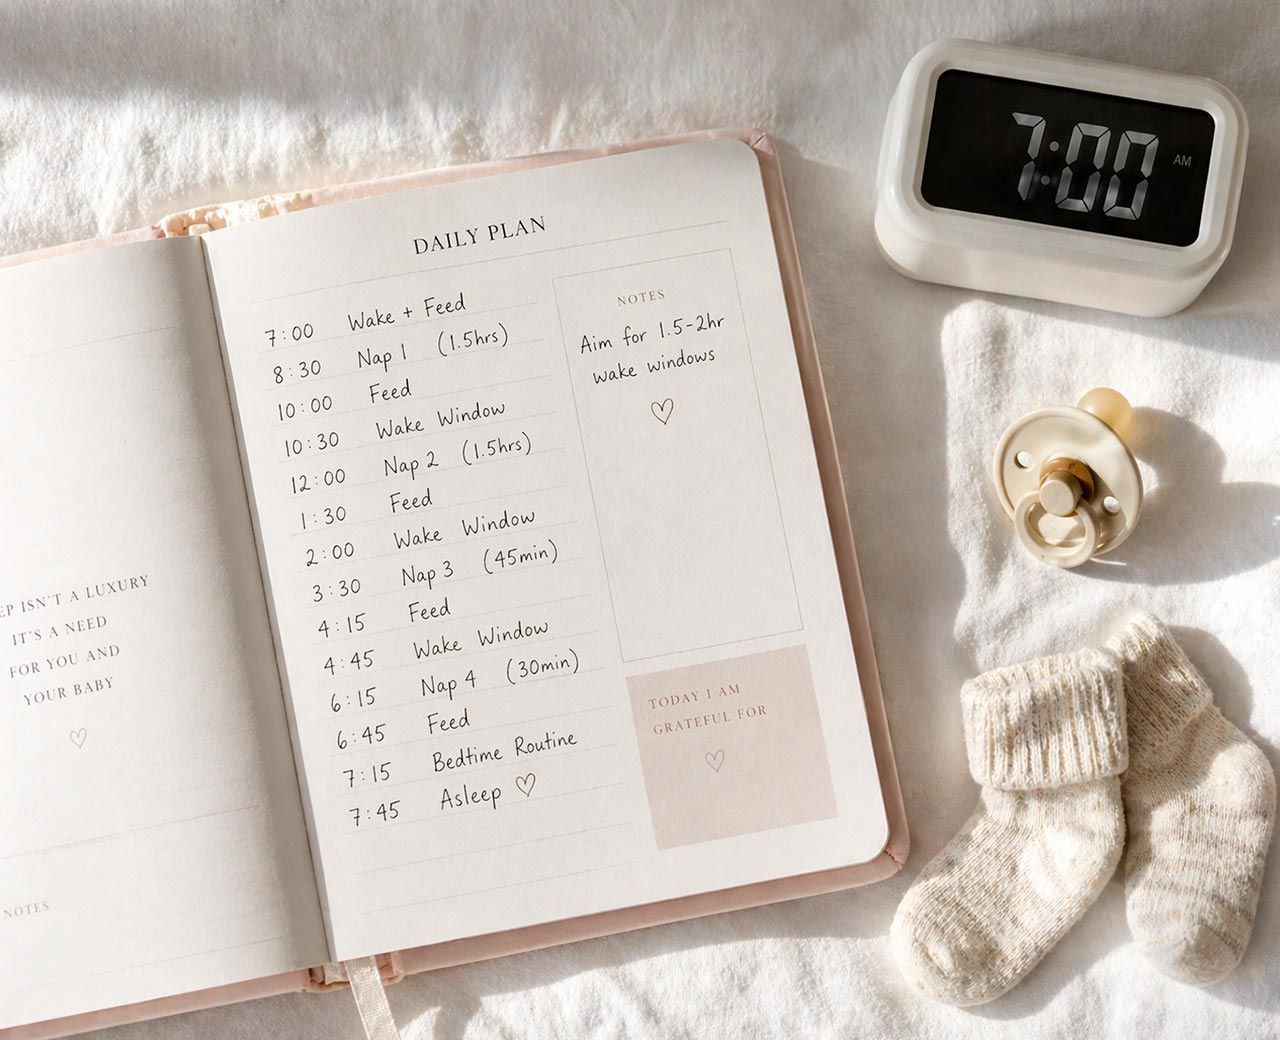 EP ISN'T A LUXURY
IT'S A NEED
FOR YOU AND
YOUR BABY
NOTES
DAILY PLAN
7:00 Wake + Feed
8:30 Nap 1 (1.5hrs)
10:00 Feed
10:30 Wake Window
12:00 Nap 2 (1.5hrs)
1:30 Feed
2:00 Wake Window
3:30 Nap 3 (45min)
4:15 Feed
4:45 Wake Window
6:15 Nap 4 (30min)
6:45 Feed
7:15 Bedtime Routine
7:45 Asleep ♡
NOTES
Aim for 1.5-2hr
wake windows
♡
TODAY I AM
GRATEFUL FOR
♡
7:00 AM